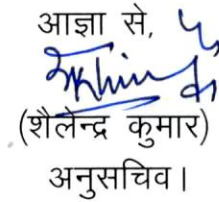 आज्ञा से,
(शैलेन्द्र कुमार)
अनुसचिव।